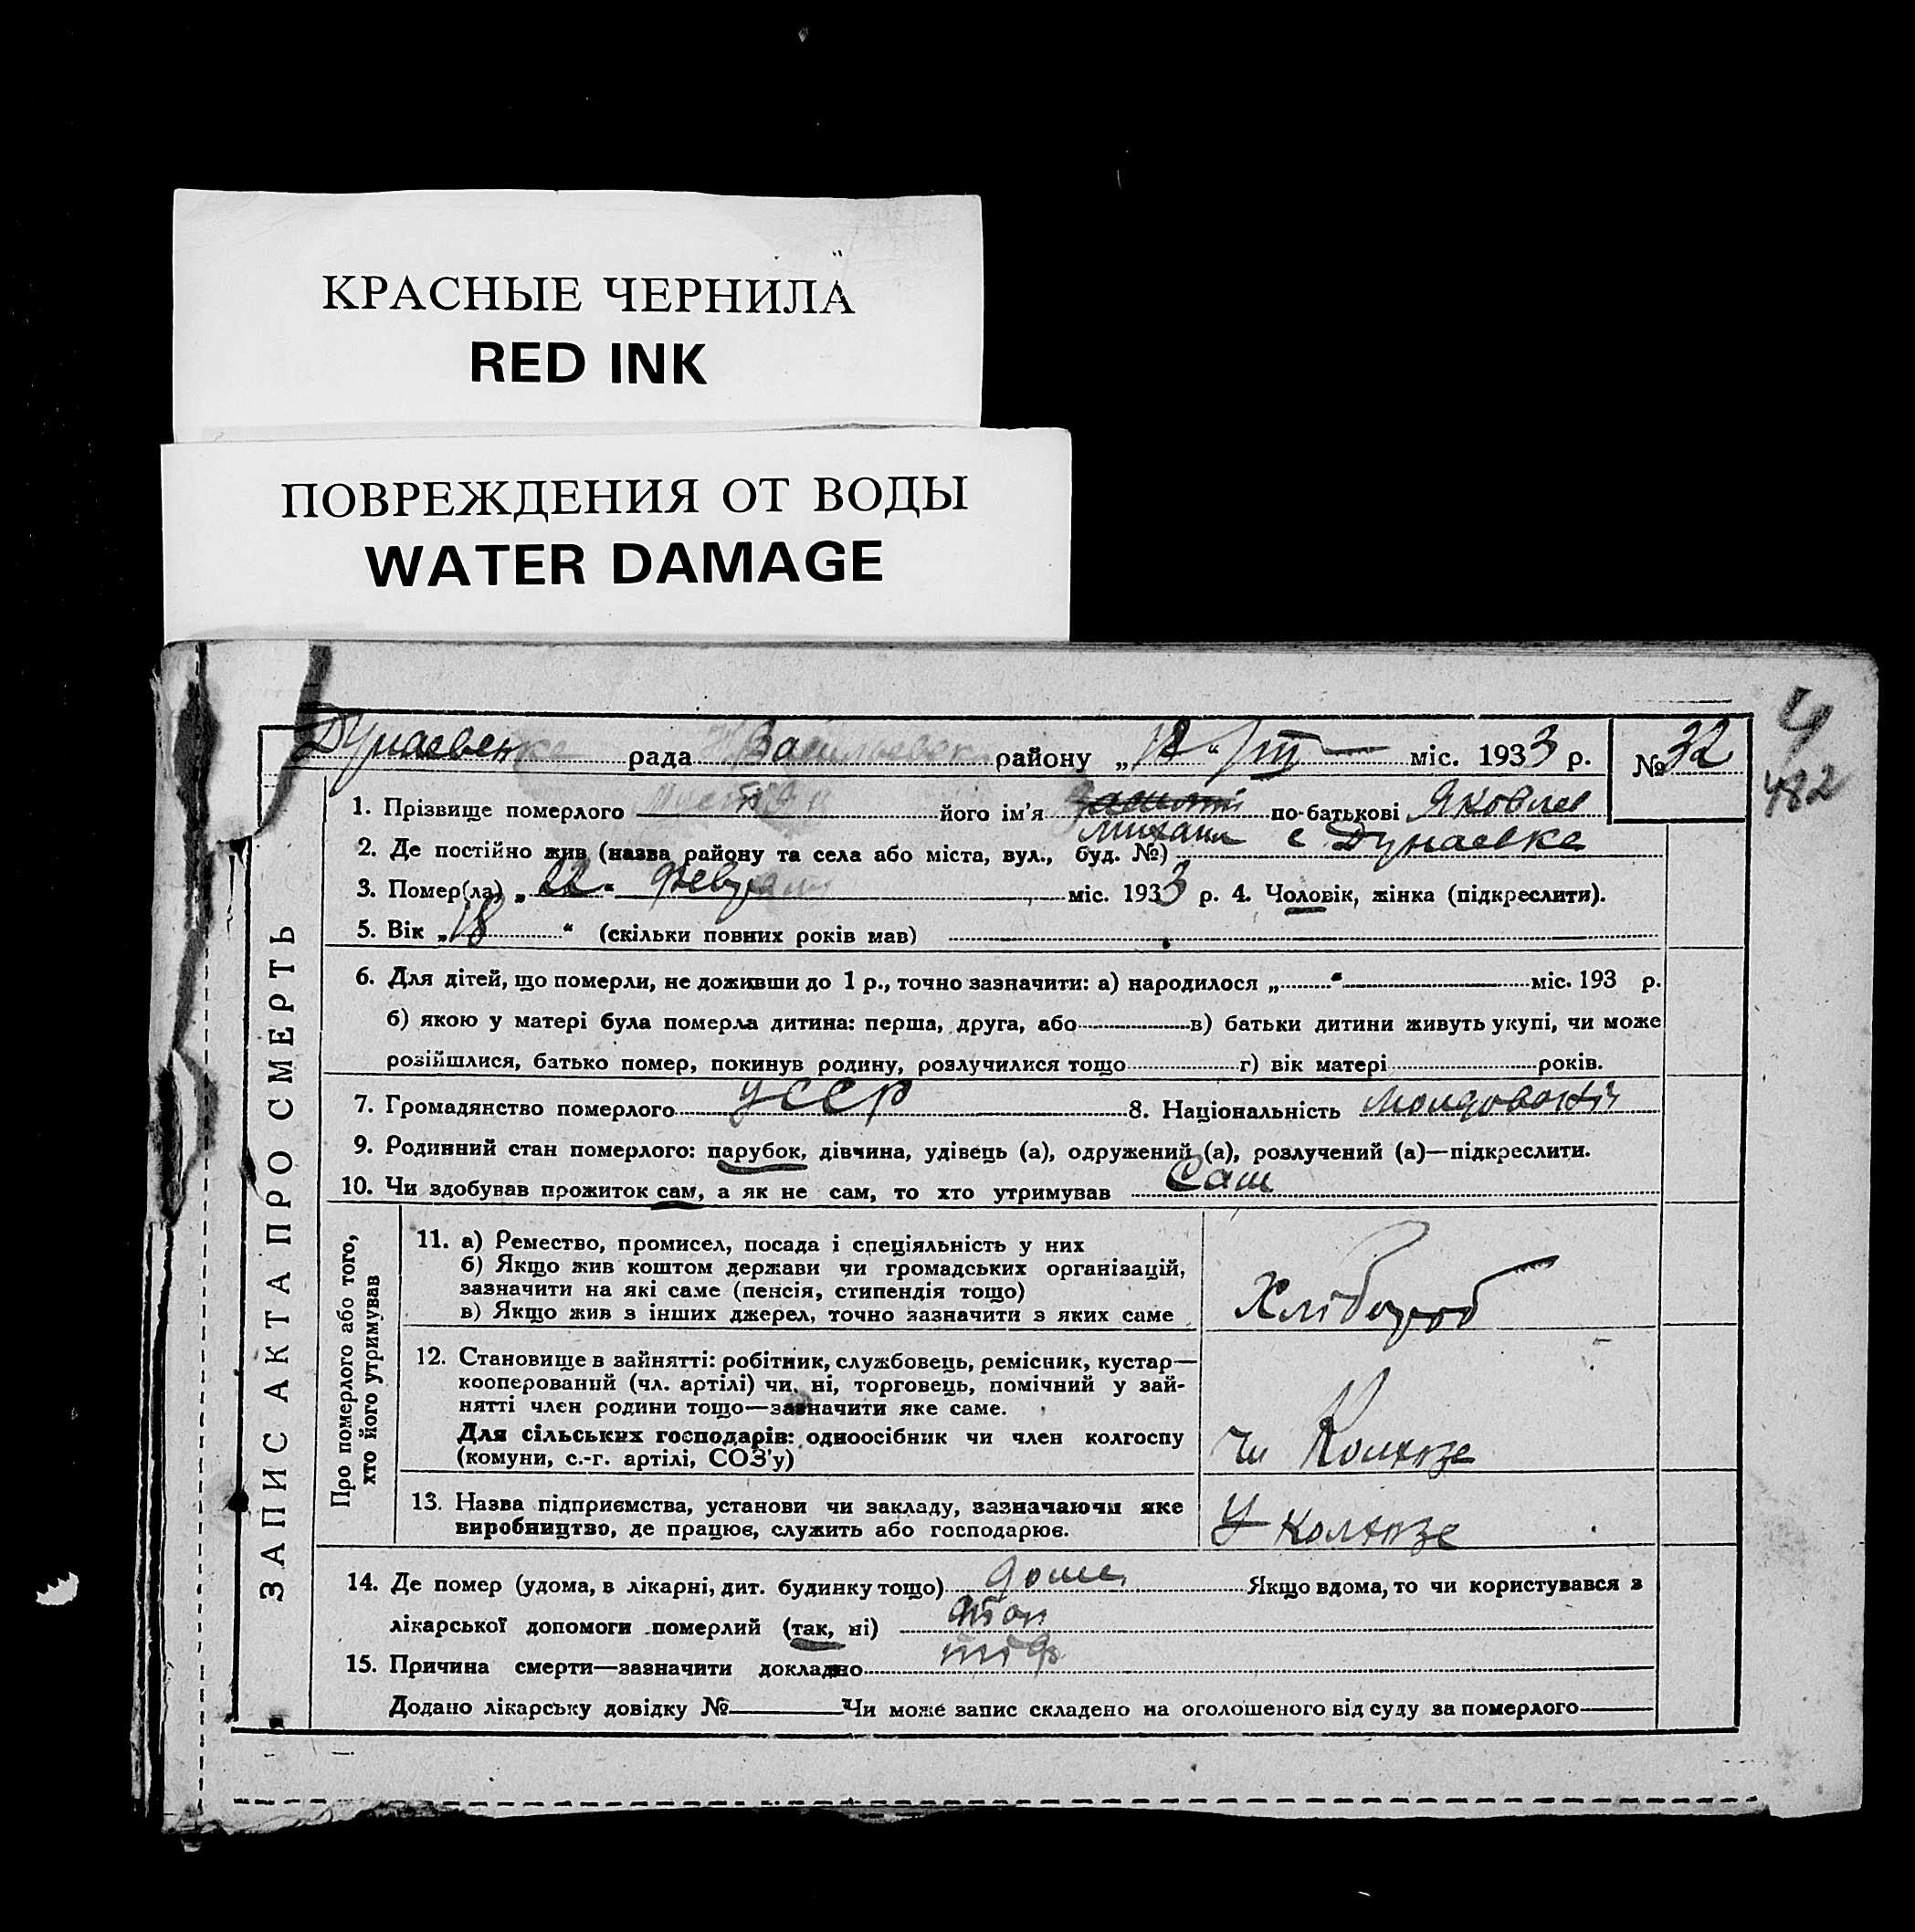 КРАСНЫЕ ЧЕРНИЛА
RED INK
ПОВРЕЖДЕНИЯ ОТ ВОДЫ
WATER DAMAGE
4
482
Дунаевенка рада району „18“ III міс. 1933 р. № 32
ЗАПИС АКТА ПРО СМЕРТЬ
1. Прізвище померлого його ім'я по-батькові Яковлев
2. Де постійно жив (назва району та села або міста, вул., буд. №) с Дунаевка
3. Помер(ла) „22“ міс. 1933 р. 4. Чоловік, жінка (підкреслити).
5. Вік „18“ (скільки повних років мав)
6. Для дітей, що померли, не доживши до 1 р., точно зазначити: а) народилося „ “ міс. 193 р.
б) якою у матері була померла дитина: перша, друга, або в) батьки дитини живуть укупі, чи може
розійшлися, батько помер, покинув родину, розлучилися тощо г) вік матері років.
7. Громадянство померлого УССР 8. Національність
9. Родинний стан померлого: парубок, дівчина, удівець (а), одружений (а), розлучений (а)—підкреслити.
10. Чи здобував прожиток сам, а як не сам, то хто утримував Сам
Про померлого або того,
хто його утримував
11. а) Ремество, промисел, посада і спеціяльність у них
б) Якщо жив коштом держави чи громадських організацій,
зазначити на які саме (пенсія, стипендія тощо)
в) Якщо жив з інших джерел, точно зазначити з яких саме
Хлібороб
12. Становище в зайнятті: робітник, службовець, ремісник, кустар—
кооперований (чл. артілі) чи ні, торговець, помічний у зай-
нятті член родини тощо—зазначити яке саме.
Для сільських господарів: одноосібник чи член колгоспу
(комуни, с.-г. артілі, СОЗ'у)
13. Назва підприємства, установи чи закладу, зазначаючи яке
виробництво, де працює, служить або господарює.
У колхозе
14. Де помер (удома, в лікарні, дит. будинку тощо) дома Якщо вдома, то чи користувався з
лікарської допомоги померлий (так, ні) так
15. Причина смерти—зазначити докладно тіф
Додано лікарську довідку № Чи може запис складено на оголошеного від суду за померлого